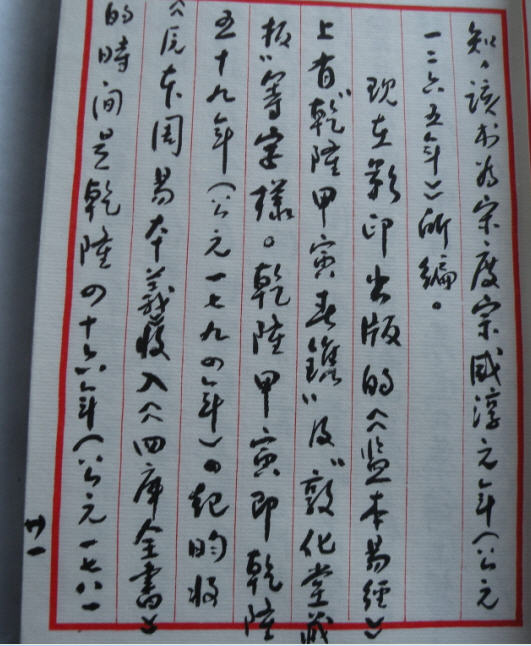 知，該书为宋度宗咸淳元年（公元
一二六五年）所編。
現在影印出版的《監本易經》
上有“乾隆甲寅春鐫”及“敦化堂藏
板”等字樣。乾隆甲寅即乾隆
五十九年（公元一七九四年）。纪昀将
《原本周易本義》收入《四庫全書》
的時间是乾隆四十六年（公元一七八一
廿一